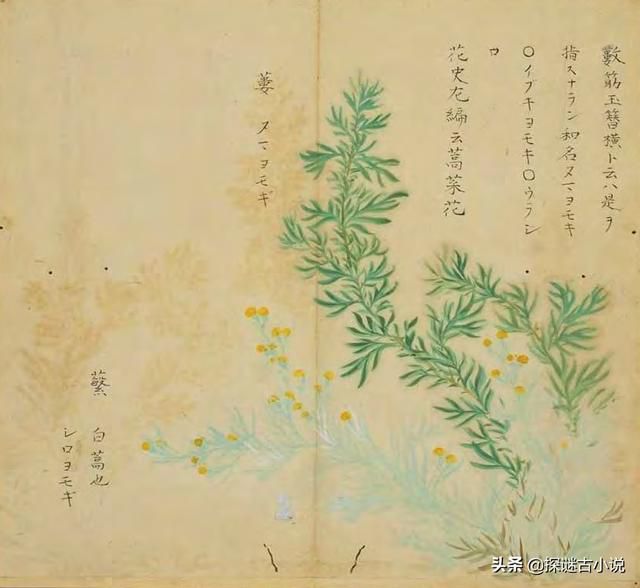 數筋玉簪横ト云ハ是ヲ
指スナラン和名ヌマヨモキ
〇イブキヨモキ〇ウラシ
ロ
花史左編云蒿菜花
蔞 ヌマヨモギ
蘩 白蒿也
シロヨモギ
头条 @探谜古小说